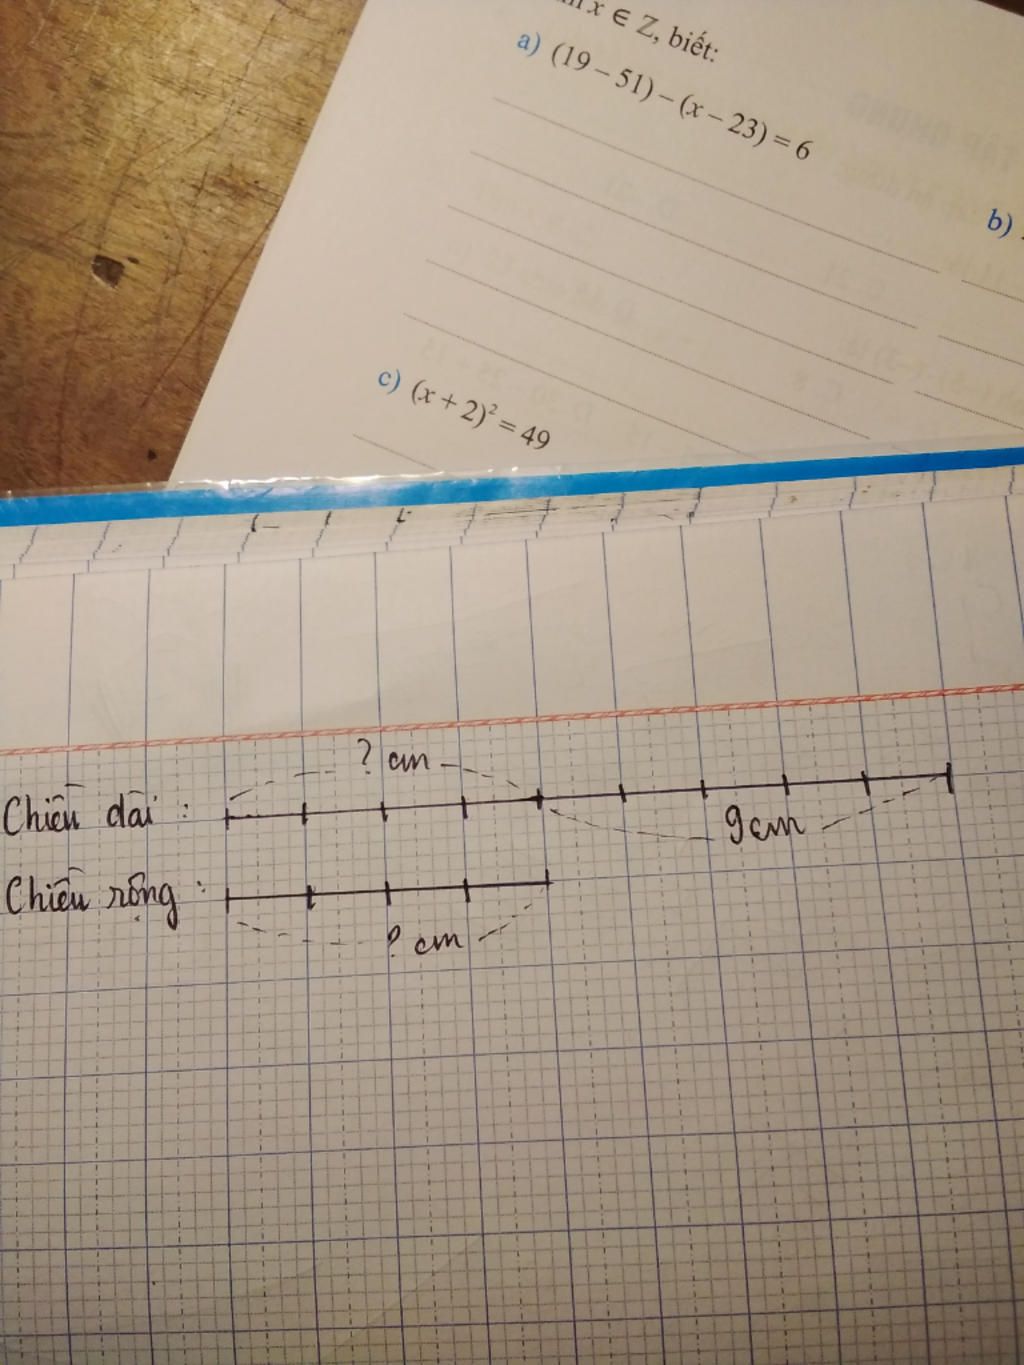 x ∈ Z, biết:
a) (19 – 51) – (x – 23) = 6
b)
c) (x + 2)² = 49
? cm
Chiều dài :
9cm
Chiều rộng :
? cm